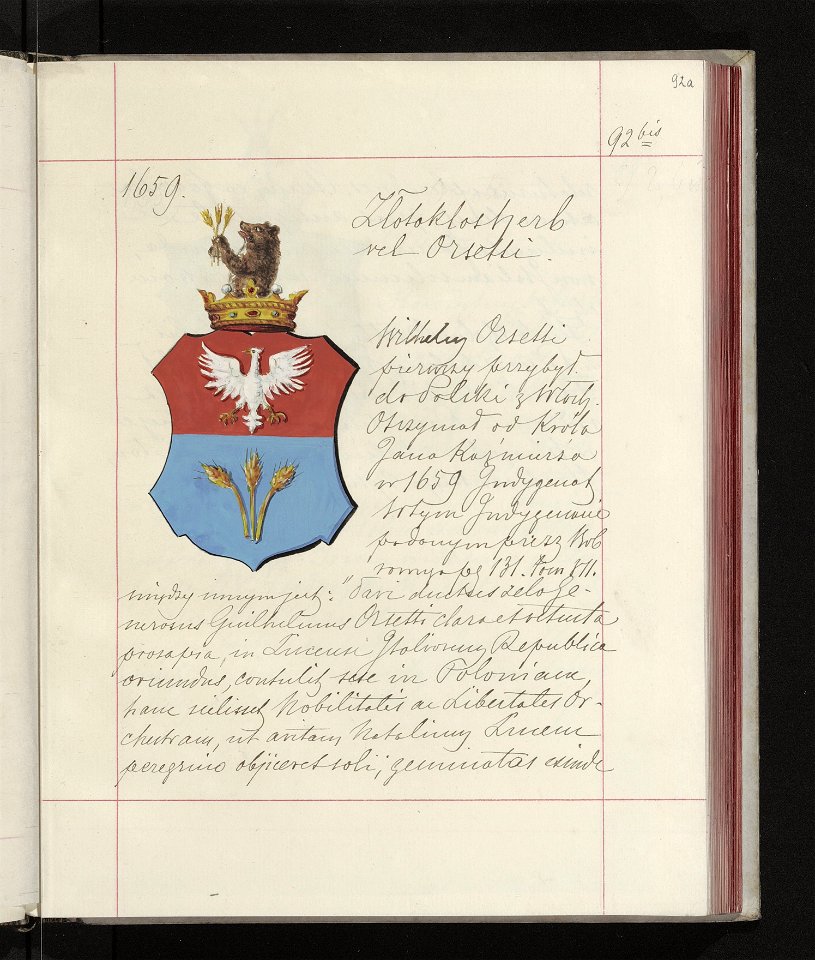 92a
92 bis
1659.
Złotokłos herb
vel Orsetti.
Wilhelm Orsetti
pierwszy przybył
do Polski z Włoch.
Otrzymał od Króla
Jana Kaźmierza
w 1659 Indygenat
W tym Indygenacie
podanym przez Bob
rowicza pg 131. Tom VII.
między innym jest: "Pari ductus zelo Ge-
nerosus Guilhelmus Orsetti clara et vetusta
prosapia, in Lucensi Italorum Republica
oriundus, contulit sese in Poloniam,
hanc scilicet Nobilitatis ac Libertatis Or-
chestram, ut avitam Natalium Lucem
peregrino objiceret soli, geminatas exinde